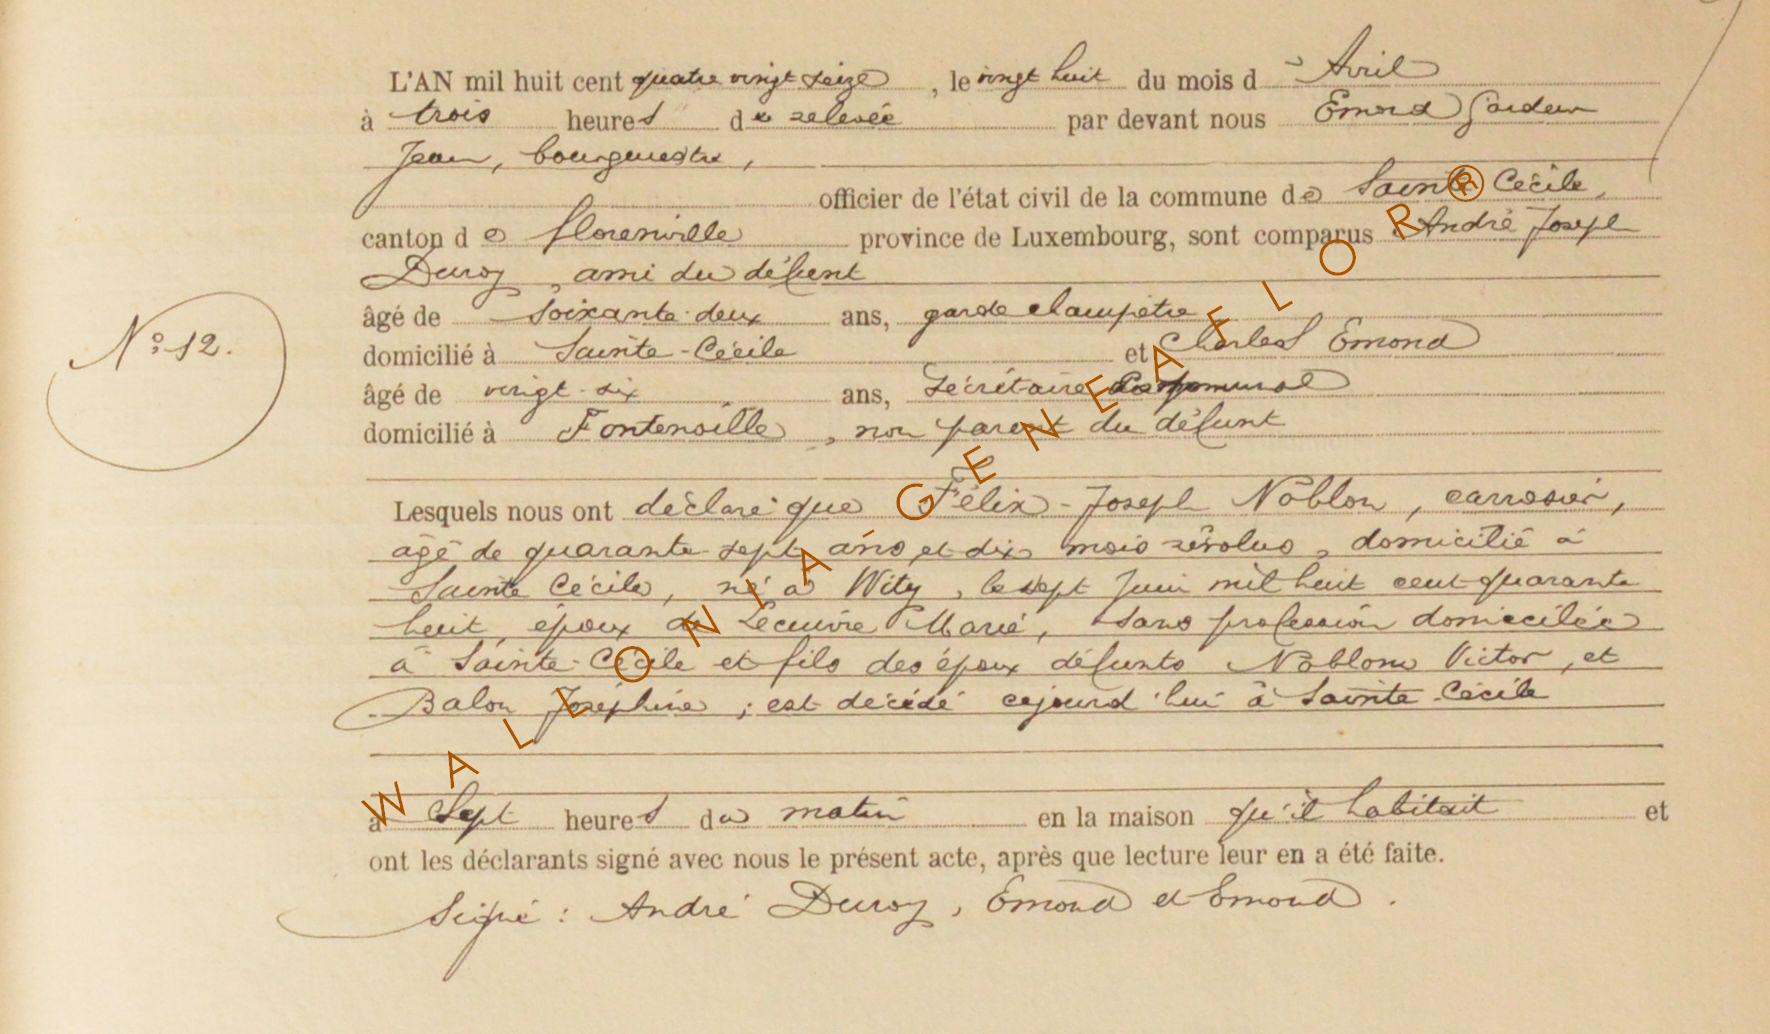 L'AN mil huit cent quatre vingt seize, le vingt huit du mois d Avril
à trois heures de relevée par devant nous Emond
Jean, bourgmestre,
officier de l'état civil de la commune de Sainte Cécile,
canton de Florenville province de Luxembourg, sont comparus André Joseph
Duroy, ami du défunt
âgé de soixante-deux ans, garde champêtre
N° 12.
domicilié à Sainte-Cécile et Charles Emond
âgé de vingt-six ans, Secrétaire communal
domicilié à Fontenoille, non parent du défunt
Lesquels nous ont déclaré que Félix-Joseph Noblom, carrossier,
âgé de quarante-sept ans et dix mois révolus, domicilié à
Sainte Cécile, né à Witry, le sept Juin mil huit cent quarante
huit, époux de Lecuivre Marie, sans profession domiciliée
à Sainte-Cécile et fils des époux défunts Noblom Victor, et
Balon Joséphine ; est décédé cejourd'hui à Sainte-Cécile
à Sept heures du matin en la maison qu'il habitait et
ont les déclarants signé avec nous le présent acte, après que lecture leur en a été faite.
Signé : André Duroy, Emond et Emond.
WALLONIA-GENEAFLOR®